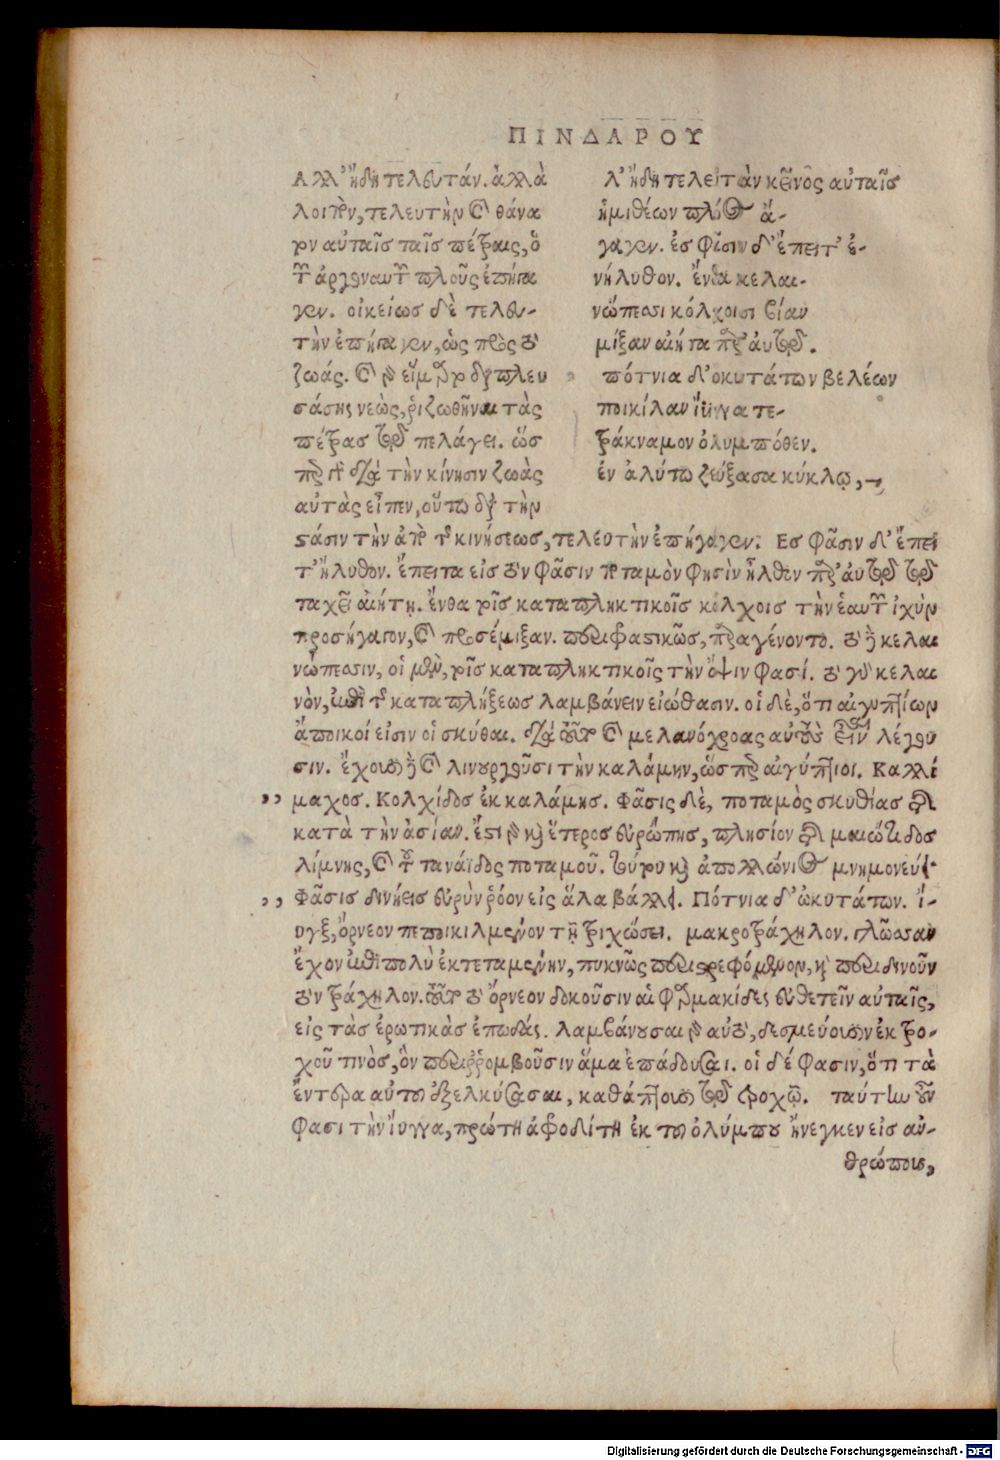 ΠΙΝΔΑΡΟΥ
Αλλ’ ἤδη τελευτάν. ἀλλὰ
λοιπὸν, τελευτὴν καὶ θάνα
τον αὐταῖς ταῖς πέτραις, ὁ
τῶν ἀργοναυτῶν πλοῦς ἐπήγα
γεν. οἰκείως δὲ τελευ-
τὴν ἐπήγαγεν, ὡς πρὸς τὸ
ζωάς. καὶ γὰρ εἵμαρτο διαπλευ
σάσης νεὼς, ῥιζωθῆναι τὰς
πέτρας τῷ πελάγει. ὥσ
περ γὰρ διὰ τὴν κίνησιν ζωὰς
αὐτὰς εἶπεν, οὕτω διὰ τὴν
λ’ ἤδη τελειτὰν κεῖνος αὐταῖς
ἡμιθέων πλόος ἄ-
γαγεν. ἐς φᾶσιν δ’ ἔπειτ’ ἐ-
νήλυθον. ἔνθα κελαι-
νώπεσσι κόλχοισι βίαν
μίξαν αἰήτα παρ’ αὐτῷ.
πότνια δ’ ὀκυτάτων βελέων
ποικίλαν ἴϋγγα τε-
τράκναμον ὀλυμπόθεν.
ἐν ἀλύτω ζεύξασα κύκλῳ,
στάσιν τὴν ἀπὸ τῆς κινήσεως, τελευτὴν ἐπήγαγεν. Ες φᾶσιν δ’ ἔπει
τ’ ἤλυθον. ἔπειτα εἰς τὸν φᾶσιν ποταμὸν φησὶν ἦλθεν παρ’ αὐτῷ τῷ
ταχεῖ αἰήτῃ. ἔνθα τοῖς καταπληκτικοῖς κόλχοις τὴν ἑαυτῶν ἰχὺν
προσήγαγον, καὶ προσέμιξαν. περιφραστικῶς, παραγένοντο. τὸ δὲ κελαι
νώπεσσιν, οἱ μὲν, τοῖς καταπληκτικοῖς τὴν ὄψιν φασί. τὸ γὰρ κελαι
νὸν, ἐπὶ τῆς καταπλήξεως λαμβάνειν εἰώθασιν. οἱ δὲ, ὅτι αἰγυπτίων
ἄποικοί εἰσιν οἱ σκύθαι. διὰ τοῦτο καὶ μελανόχροας αὐτοὺς εἶναι λέγου
σιν. ἔχουσι δὲ καὶ λινουργοῦσι τὴν καλάμην, ὥσπερ αἰγύπτιοι. Καλλί
,, μαχος. Κολχίδος ἐκ καλάμης. Φᾶσις δὲ, ποταμὸς σκυθίας ἐστὶ
κατὰ τὴν ἀσίαν. ἔστι γὰρ καὶ ἕτερος εὐρώπης, πλησίον ἐστὶ μαιώτιδος
λίμνης, καὶ τοῦ τανάϊδος ποταμοῦ. τούτου καὶ ἀπολλώνιος μνημονεύει.
,, Φᾶσις δινήεις εὐρὺν ῥόον εἰς ἅλα βάλλει. Πότνια δ’ ὠκυτάτων. ἴ-
υγξ, ὄρνεον πεποικιλμένον τῇ τριχώσει. μακροτράχηλον. γλῶσσαν
ἔχον ἐπὶ πολὺ ἐκτεταμένην, πυκνῶς περιστρεφόμενον, καὶ περιδινοῦν
τὸν τράχηλον. τοῦτο τὸ ὄρνεον δοκοῦσιν αἱ φαρμακίδες εὐθετεῖν αὐταῖς,
εἰς τὰς ἐρωτικὰς ἐπωδάς. λαμβάνουσαι γὰρ αὐτὸ, δεσμεύουσιν ἐκ τρο-
χοῦ τινὸς, ὃν περιῤῥομβοῦσιν ἅμα ἐπάδουσαι. οἱ δέ φασιν, ὅτι τὰ
ἔντερα αὐτοῦ ἐξελκύσασαι, καθάπτουσι τῷ τροχῷ. ταύτην οὖν
φασι τὴν ἴυγγα, πρώτη ἀφροδίτη ἐκ τοῦ ὀλύμπου ἤνεγκεν εἰς ἀν-
θρώπους,
Digitalisierung gefördert durch die Deutsche Forschungsgemeinschaft - DFG